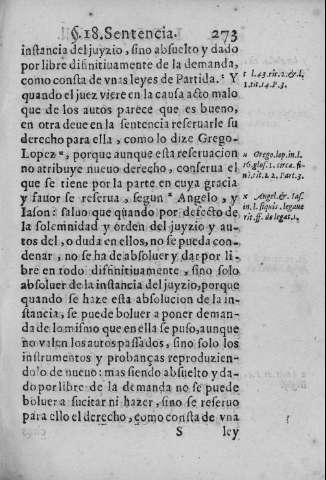 §. 18. Sentencia. 273
instancia del juyzio, sino absuelto y dado
por libre difinitiuamente de la demanda,
como consta de vnas leyes de Partida. ᵗ Y
quando el juez viere en la causa acto malo
que de los autos parece que es bueno,
en otra deue en la sentencia reseruarle su
derecho para ella, como lo dize Grego-
Lopez ᵘ, porque aunque esta reseruacion
no atribuye nueuo derecho, conserua el
que se tiene por la parte en cuya gracia
y fauor se reserua, segun ˣ Angelo, y
Iason: saluo que quando por defecto de
la solemnidad y orden del juyzio y au-
tos del, o duda en ellos, no se pueda con-
denar, no se ha de absoluer y dar por li-
bre en todo difinitiuamente, sino solo
absoluer de la instancia del juyzio, porque
quando se haze esta absolucion de la in-
stancia, se puede boluer a poner deman-
da de lo mismo que en ella se puso, aunque
no valen los autos passados, sino solo los
instrumentos y probanças reproduzien-
dolo de nueuo: mas siendo absuelto y da-
do por libre de la demanda no se puede
boluer a sucitar ni hazer, sino se reseruo
para ello el derecho, como consta de vna
S ley
t l. 43. tit. 2. & l.
1. tit. 14. P. 3.
u Grego. lop. in l.
16. glos. 1. circa fi-
ni. tit. 22. Part. 3.
x Angel. & Ias.
in l. siquis. legaue
rit. ff. de legat. 1.